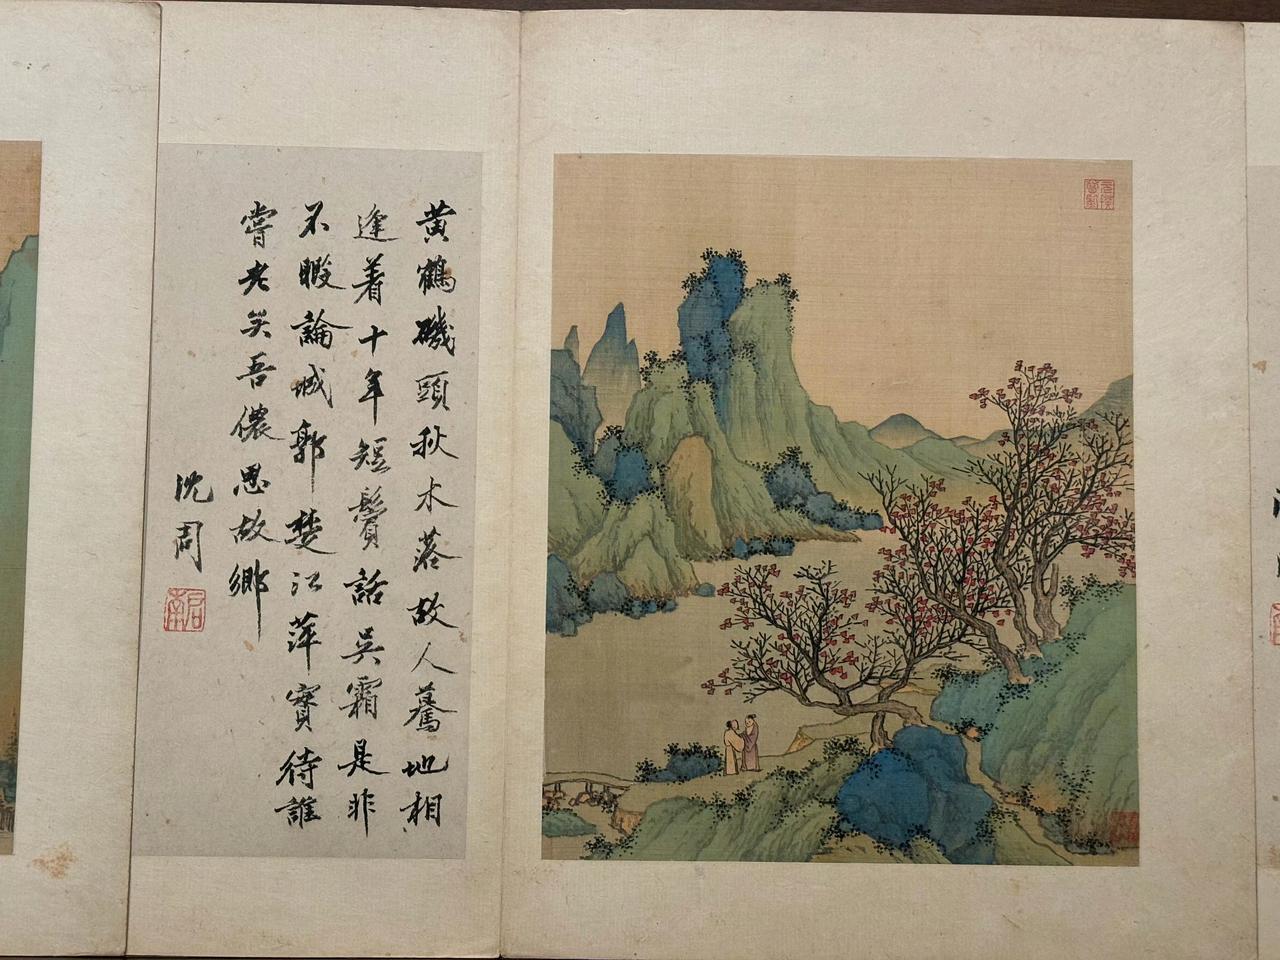 黄鶴磯頭秋水落故人驀地相
逢着十年短鬢話吳霜是非
不暇論城郭楚江萍實待誰
嘗老笑吾儂思故鄉
沈周
启南